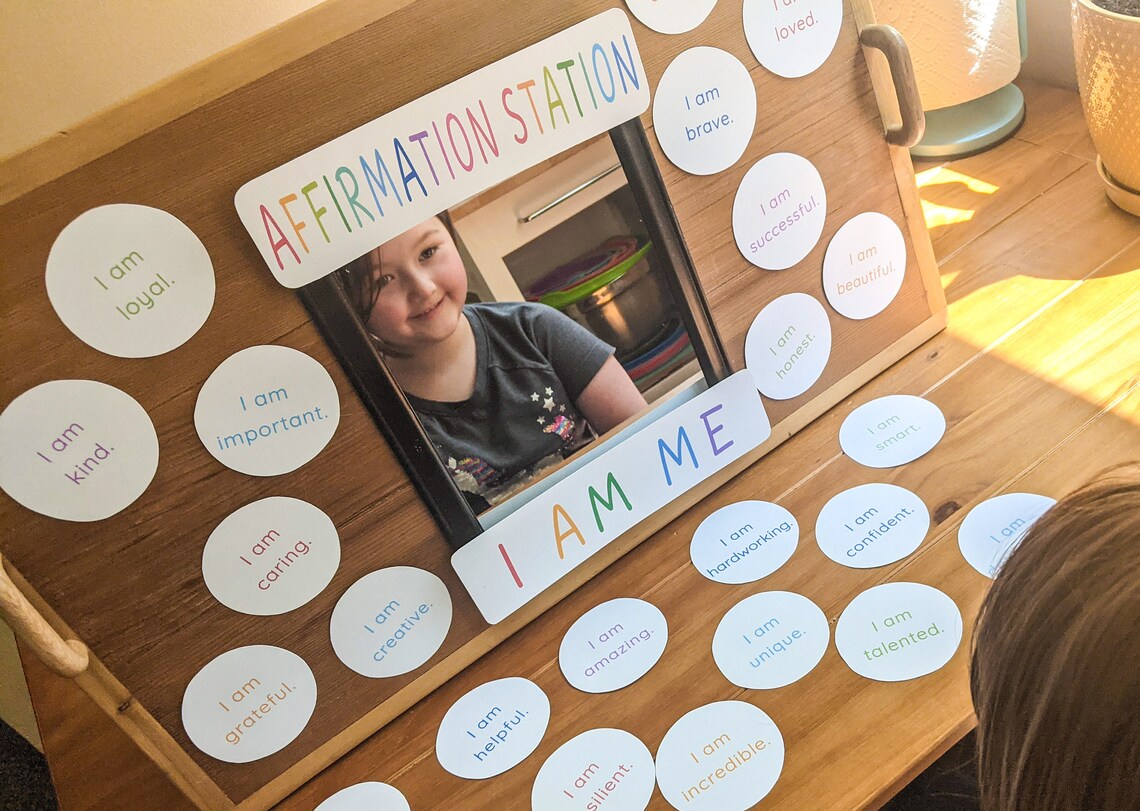 AFFIRMATION STATION
I AM ME
I am
loyal.
I am
kind.
I am
important.
I am
caring.
I am
creative.
I am
grateful.
I am
loved.
I am
brave.
I am
successful.
I am
beautiful.
I am
honest.
I am
smart.
I am
hardworking.
I am
confident.
I am
I am
amazing.
I am
unique.
I am
talented.
I am
helpful.
I am
I am
incredible.